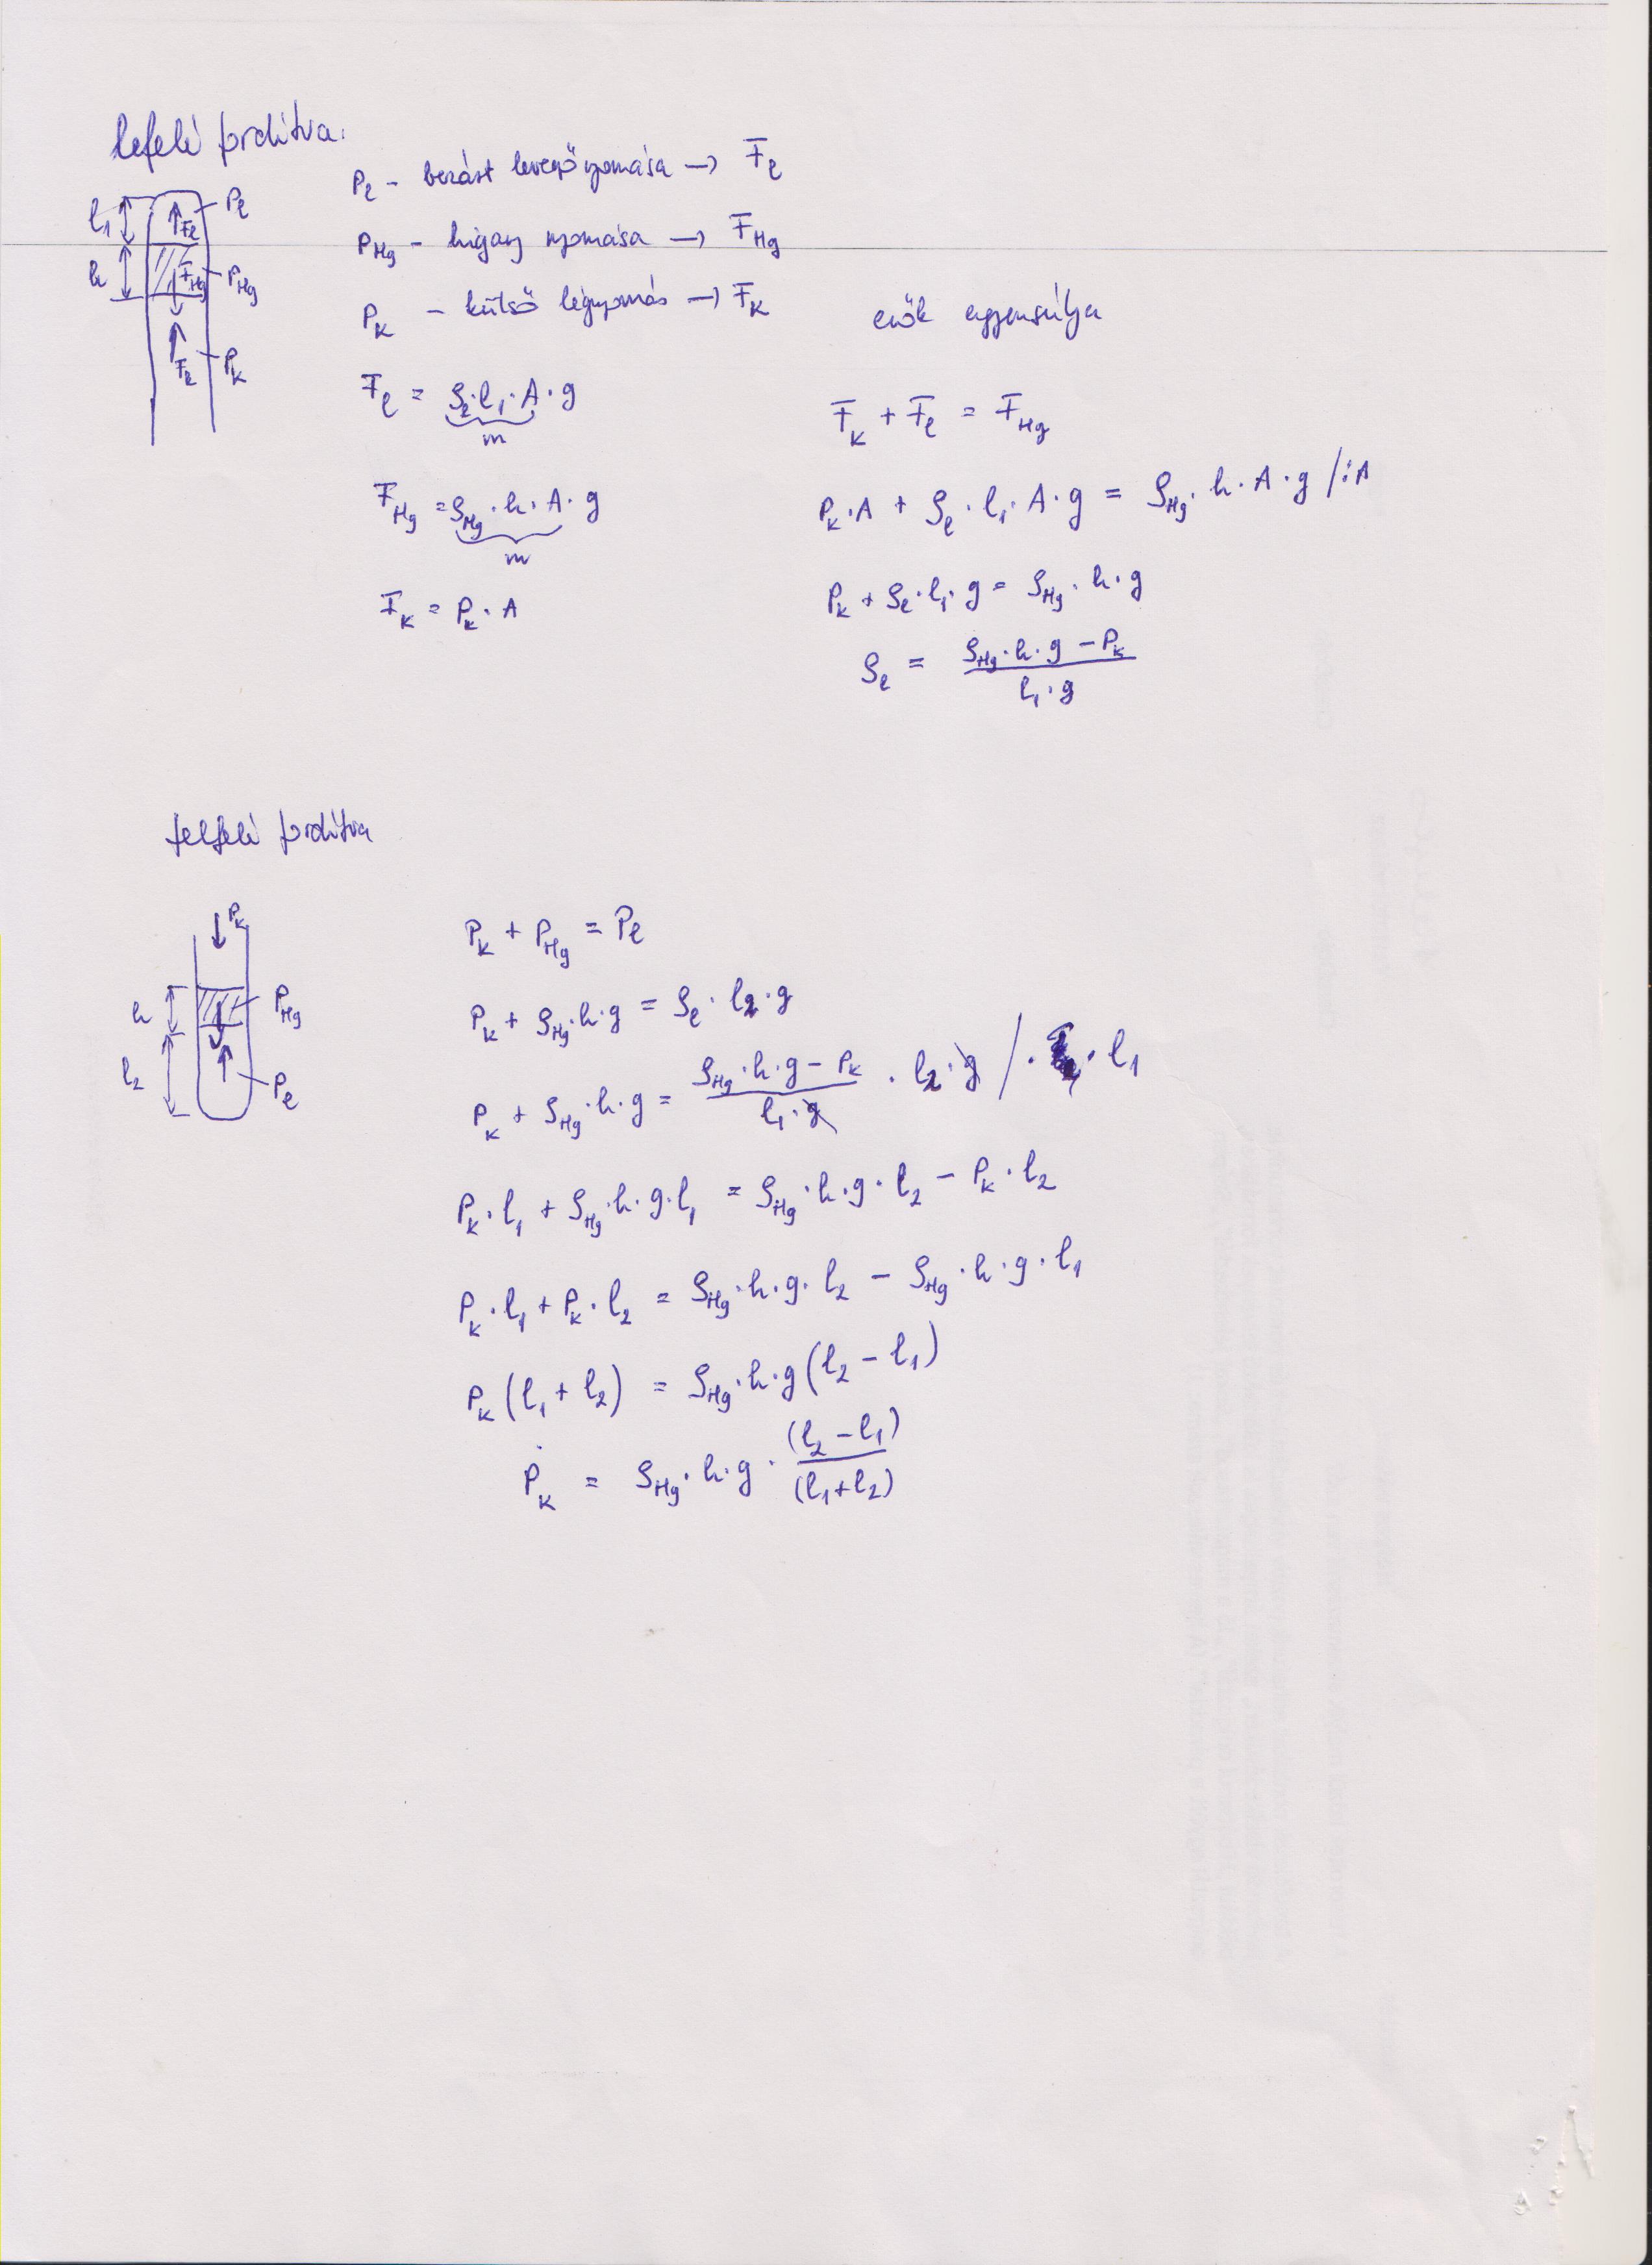 lefelé fordítva:
l₁
Pℓ
Fℓ
h
F_Hg
P_Hg
Fk
P_K
Pℓ - bezárt levegő nyomása → Fℓ
P_Hg - higany nyomása → F_Hg
P_K - külső légnyomás → F_K
Fℓ = ρℓ · l₁ · A · g
m
F_Hg = ρ_Hg · h · A · g
m
F_K = P_K · A
erők egyensúlya
F_K + Fℓ = F_Hg
P_K · A + ρℓ · l₁ · A · g = ρ_Hg · h · A · g /:A
P_K + ρℓ · l₁ · g = ρ_Hg · h · g
ρℓ = (ρ_Hg · h · g - P_K) / (l₁ · g)
felfelé fordítva
P_K
h
P_Hg
l₂
Pℓ
P_K + P_Hg = Pℓ
P_K + ρ_Hg · h · g = ρℓ · l₂ · g
P_K + ρ_Hg · h · g = (ρ_Hg · h · g - P_K) / (l₁ · g) · l₂ · g / · l₁
P_K · l₁ + ρ_Hg · h · g · l₁ = ρ_Hg · h · g · l₂ - P_K · l₂
P_K · l₁ + P_K · l₂ = ρ_Hg · h · g · l₂ - ρ_Hg · h · g · l₁
P_K (l₁ + l₂) = ρ_Hg · h · g (l₂ - l₁)
P_K = ρ_Hg · h · g · (l₂ - l₁) / (l₁ + l₂)